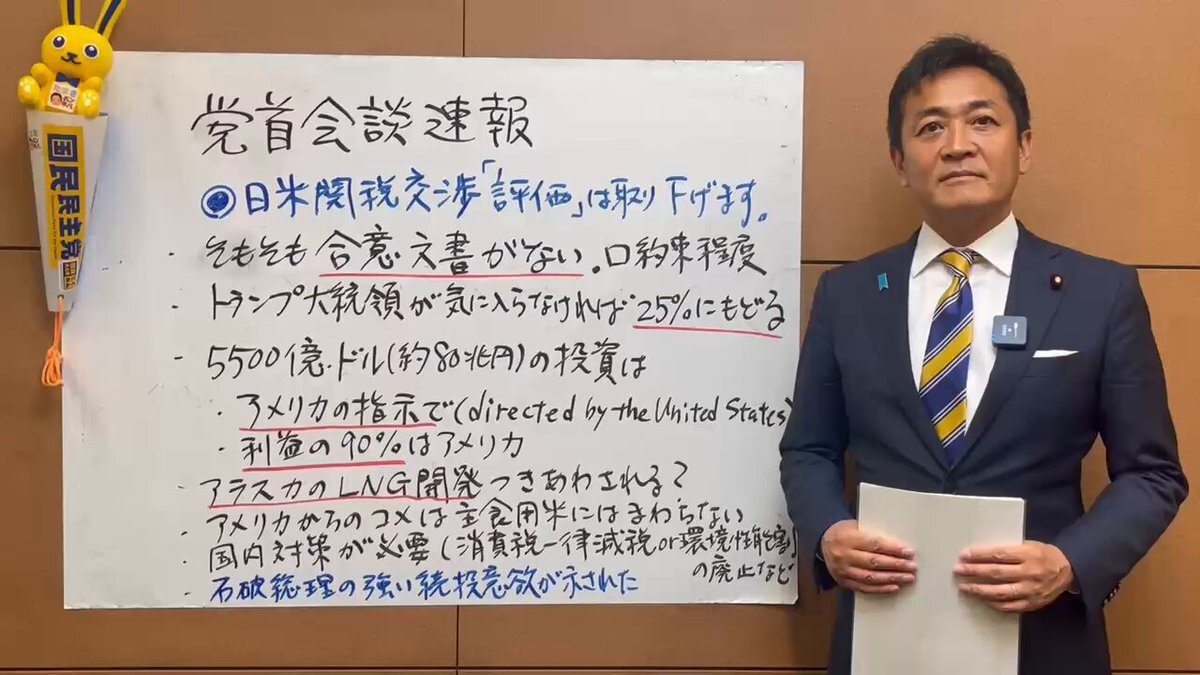 国民民主党
党首会談速報
◎日米関税交渉「評価」は取り下げます。
・そもそも合意文書がない。口約束程度
・トランプ大統領が気に入らなければ25%にもどる
・5500億ドル(約80兆円)の投資は
・アメリカの指示で(directed by the United States)
・利益の90%はアメリカ
・アラスカのLNG開発つきあわされる?
・アメリカからのコメは主食用米にはまわらない
・国内対策が必要(消費税一律減税or環境性能割
の廃止など
・石破総理の強い続投意欲が示された